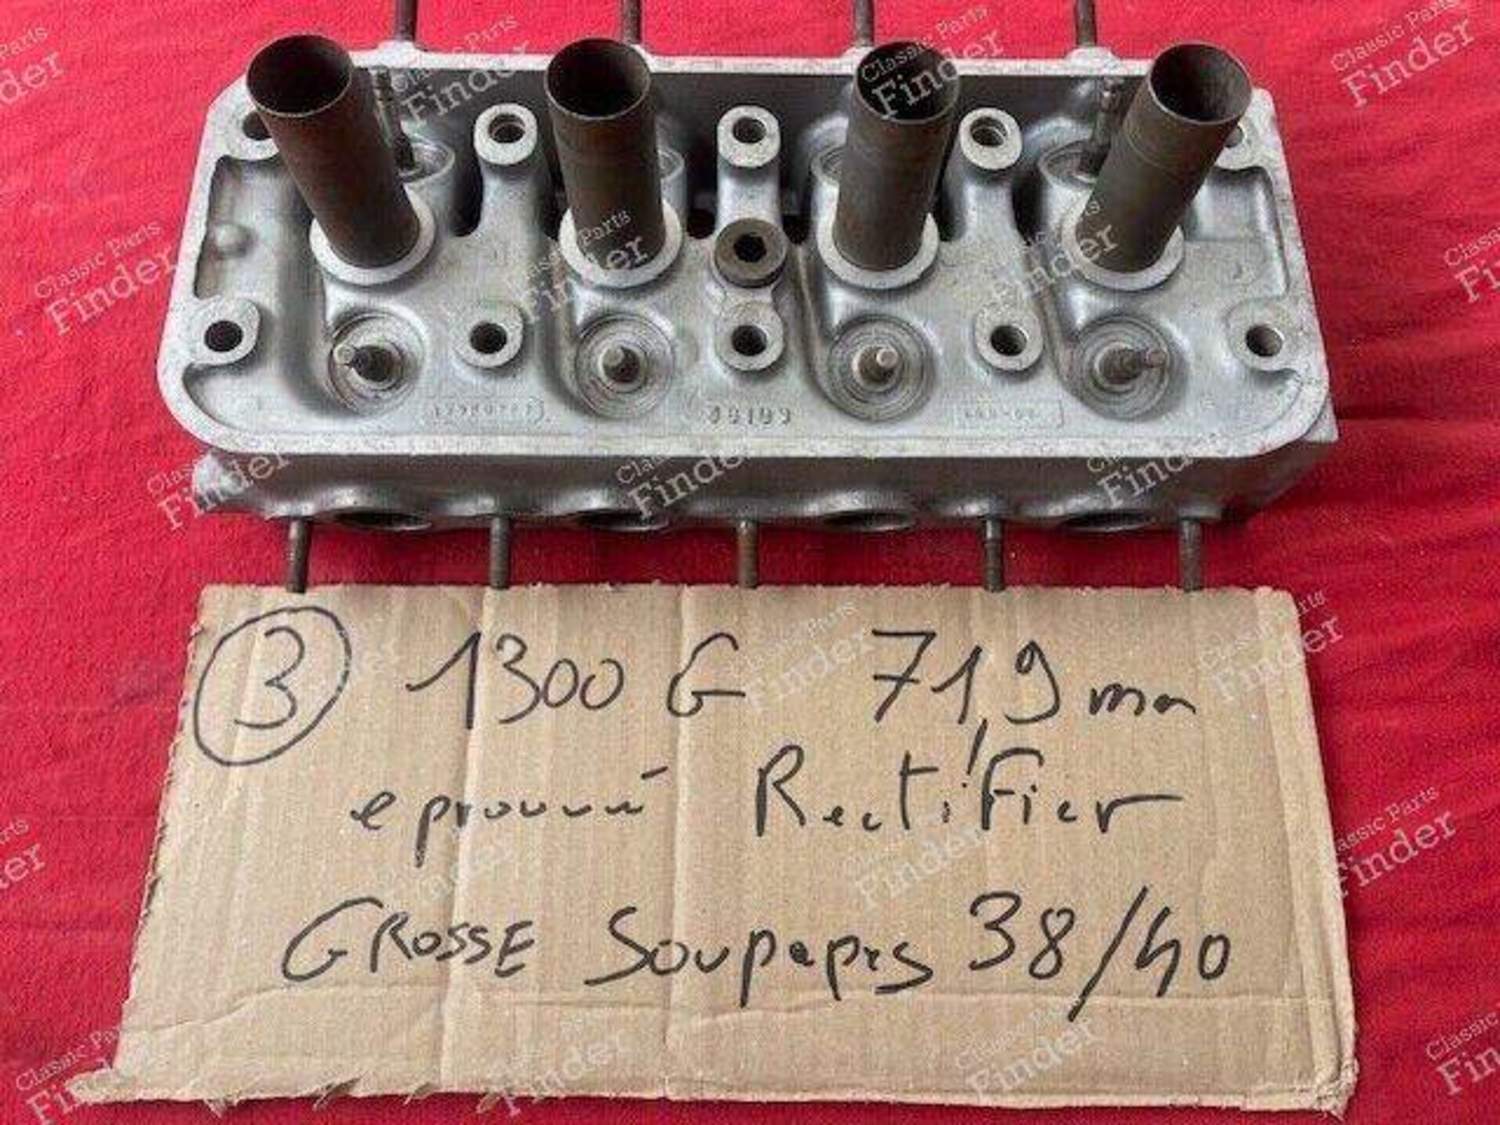 Classic Parts Finder
③ 1300 G 71,9 mm
eprouvé Rectifier
GROSSE Soupapes 38/40